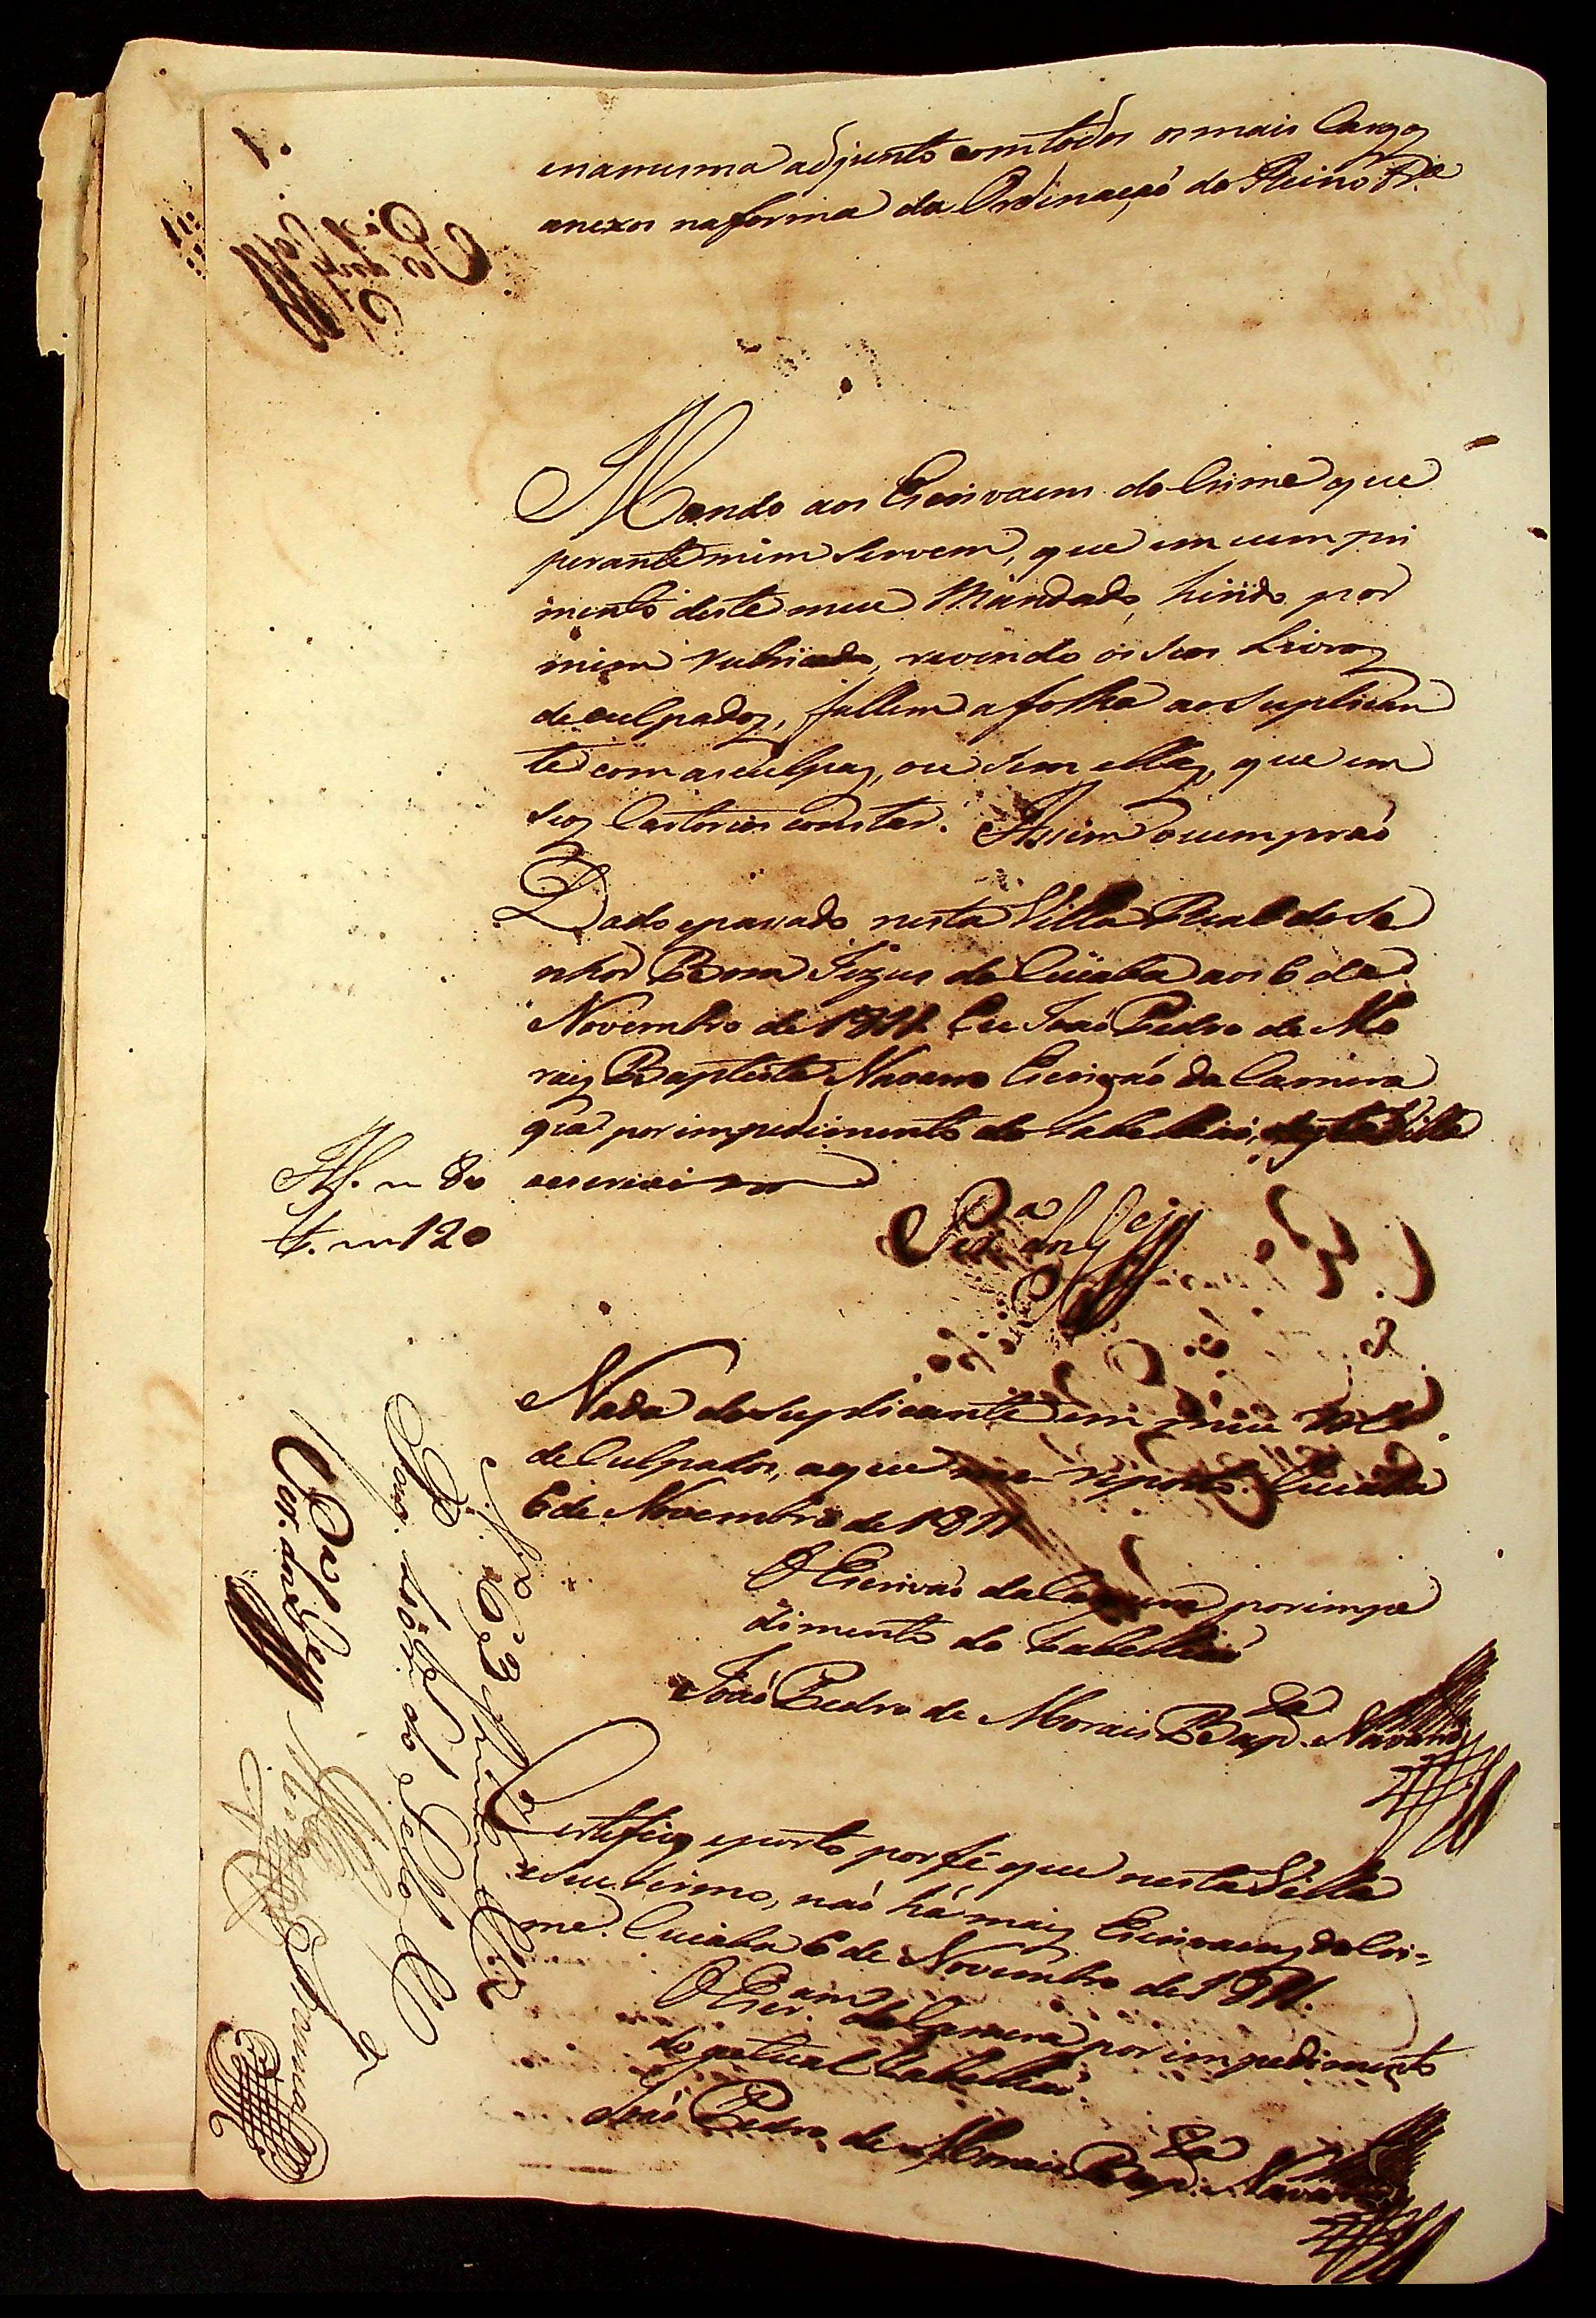 enamesma adjunto com todos os mais Cargoz
anexos na forma da Ordinaçaó do Reino &.ª
Mando aos Escrivaens do Crime que
perante mim Servem, que em cumpri
mento deste meu Mandado, hindo por
mim rubricado, revendo os seos Livroz
de culpadoz, fallem a folha ao Suplican
te com as culpaz, ou sem ellaz, que em
seoz Cartorios constar. Assim o cumpraó
Dado e passado nesta Villa Real do Se
nhor Bom Jezus do Cuiaba aos 6 de
Novembro de 1811 Eu Joaó Pedro de Mo
raiz Baptista Navarro Escrivaó da Camera
que por impedimento do Tabelliaó, desta Villa
oescrevi
80
120
Nada do suplicante em meu
de Culpados, aque me reporto. Cuiaba
6 de Novembro de 1811
O Escrivaó da Camera por impe
dimento do Tabelliaó
Joaó Pedro de Morais Bap.ta Navarro
Certefico eporto por fé que nesta Villa
eseu termo, naó há maiz Escrivaenz do Cri-
me. Cuiaba 6 de Novembro de 1811.
O Escr.am da Camera por impedimento
do actual Tabelliaó.
Joaó Pedro de Morais Bap.ta Navarro
N. 63
Pag. do Sello